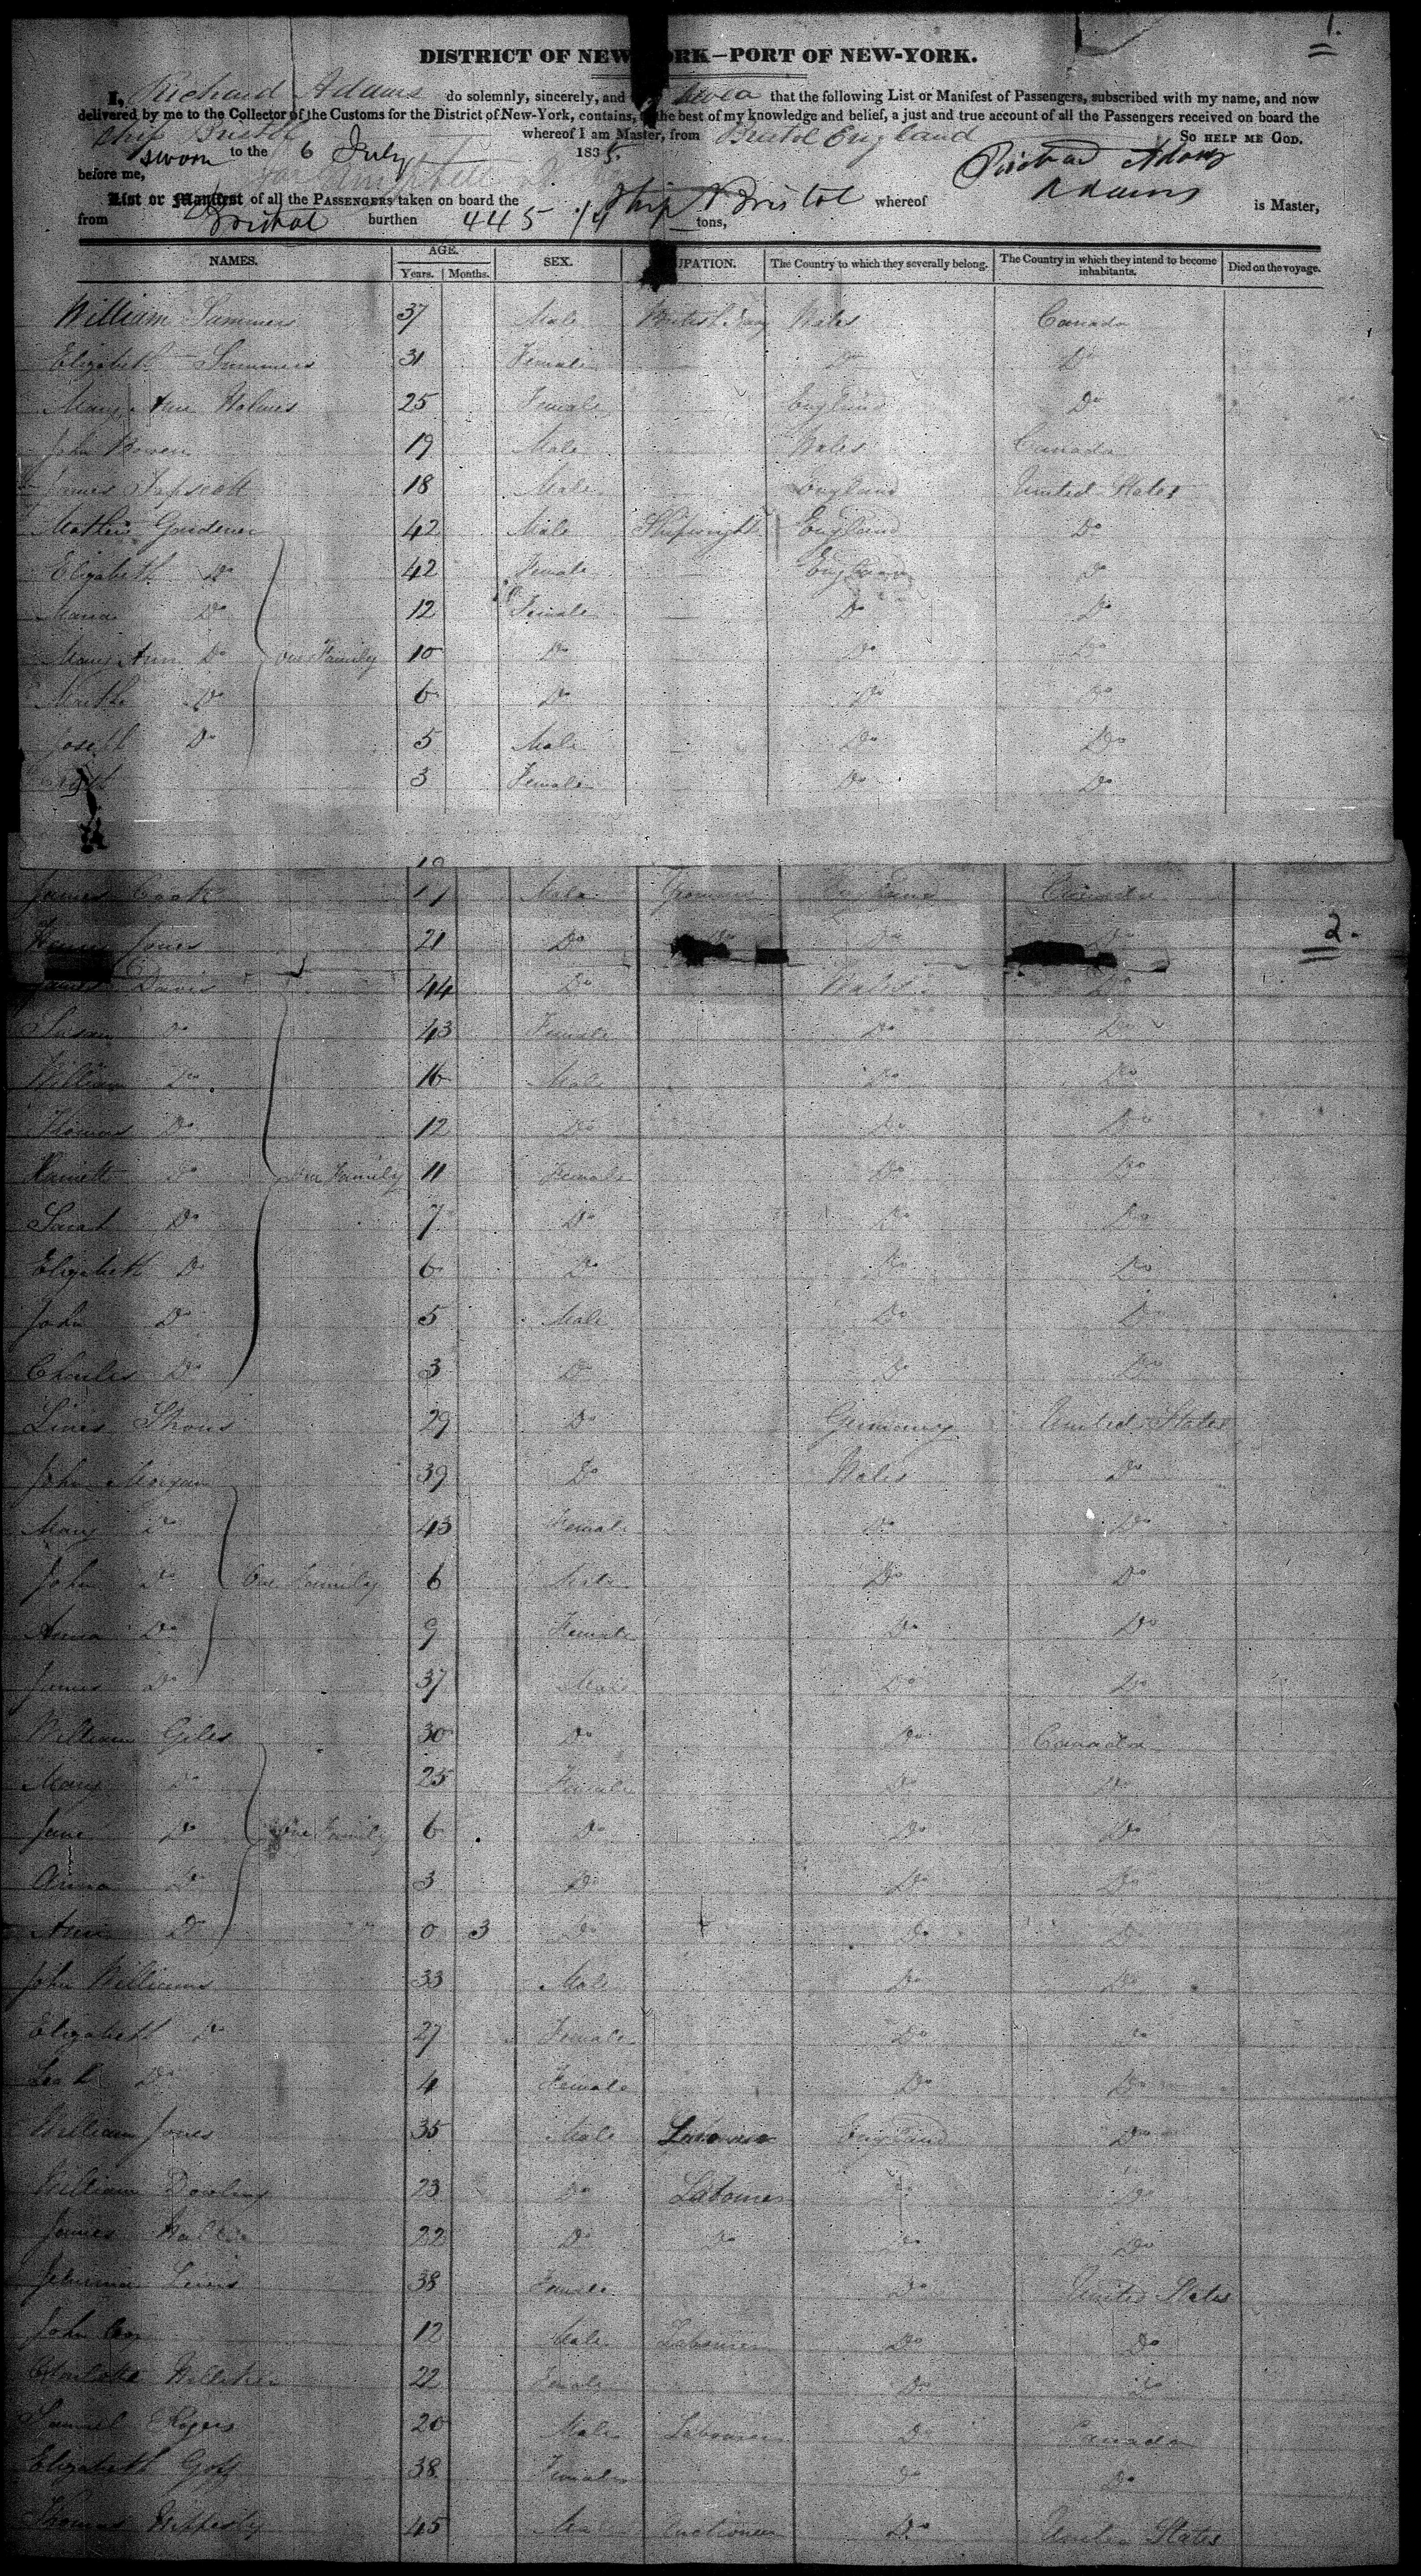 1.
DISTRICT OF NEW YORK—PORT OF NEW-YORK.
I, Richard Adams do solemnly, sincerely, and that the following List or Manifest of Passengers, subscribed with my name, and now
delivered by me to the Collector of the Customs for the District of New-York, contains, to the best of my knowledge and belief, a just and true account of all the Passengers received on board the
Ship Bristol whereof I am Master, from Bristol England So HELP ME GOD.
Sworn to the 6 July 1835. Richard Adams
before me,
List or Manifest of all the PASSENGERS taken on board the Ship Bristol whereof Adams is Master,
from Bristol burthen 445 14 tons,
NAMES. AGE. SEX. UPATION. The Country to which they severally belong. The Country in which they intend to become inhabitants. Died on the voyage.
Years. Months.
William Summers 37 Male British Navy Wales Canada
Elizabeth Summers 31 Female Do Do
Mary Ann Holmes 25 Female England Do
John Bowen 19 Male Wales Canada
James Tapscott 18 Male England United States
Mathew 42 Male Shipwright England Do
Elizabeth Do 42 Female England Do
Maria Do 12 Female Do Do
Mary Ann Do One Family 10 Do Do Do
Do 6 Do Do Do
Joseph Do 5 Male Do Do
3 Female Do Do
James Cook 19 Male England Canada
Jones 21 Do Do Do
2.
Davis 44 Do Wales Do
Susan Do 43 Female Do Do
William Do 16 Male Do Do
Thomas Do 12 Do Do Do
Harriett Do One Family 11 Female Do Do
Sarah Do 7 Do Do Do
Elizabeth Do 6 Do Do Do
John Do 5 Male Do Do
Charles Do 3 Do Do Do
29 Do Germany United States
John Morgan 39 Do Wales Do
Mary Do 43 Female Do Do
John Do One Family 6 Male Do Do
Anna Do 9 Female Do Do
James Do 37 Male Do Do
William Giles 30 Do Do Canada
Mary Do 25 Female Do Do
Jane Do One Family 6 Do Do Do
Anna Do 3 Do Do Do
Ann Do 0 3 Do Do Do
John Williams 33 Male Do Do
Elizabeth Do 27 Female Do Do
Leah Do 4 Female Do Do
William Jones 35 Male Labourer England Do
William Dowling 23 Do Labourer Do Do
James 22 Do Do Do Do
Jemima Lewis 38 Female Do United States
John Cox 12 Male Labourer Do Do
Charlotte 22 Female Do Do
Samuel Rogers 20 Male Labourer Do Canada
Elizabeth Goff 38 Female Do Do
Thomas 45 Male Auctioneer Do United States